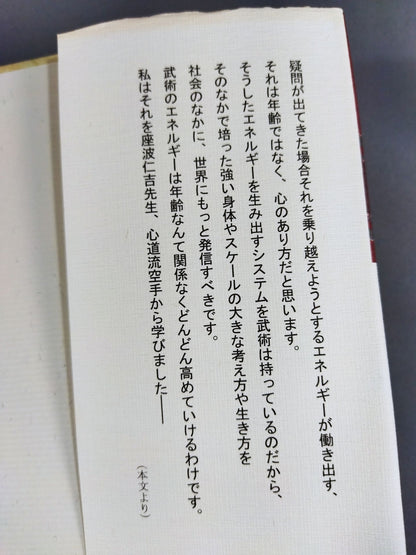 疑問が出てきた場合それを乗り越えようとするエネルギーが働き出す、
それは年齢ではなく、心のあり方だと思います。
そうしたエネルギーを生み出すシステムを武術は持っているのだから、
そのなかで培った強い身体やスケールの大きな考え方や生き方を
社会のなかに、世界にもっと発信すべきです。
武術のエネルギーは年齢なんて関係なくどんどん高めていけるわけです。
私はそれを座波仁吉先生、心道流空手から学びました――
（本文より）